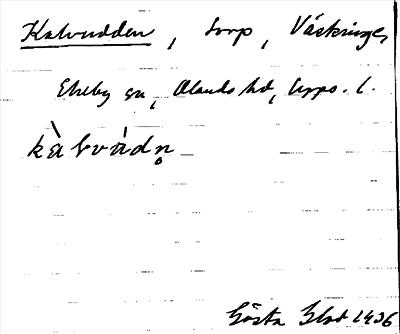 Kalvudden, torp, Väskinge,
Ekeby sn, Olands hd, Upps. l.
kàlvùdn̥
Gösta 1936